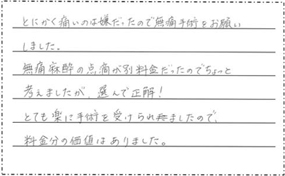 とにかく痛いのは嫌だったので無痛手術をお願い
しました。
無痛麻酔の点滴が別料金だったのでちょっと
考えましたが、選んで正解！
とても楽に手術を受けられましたので、
料金分の価値はありました。